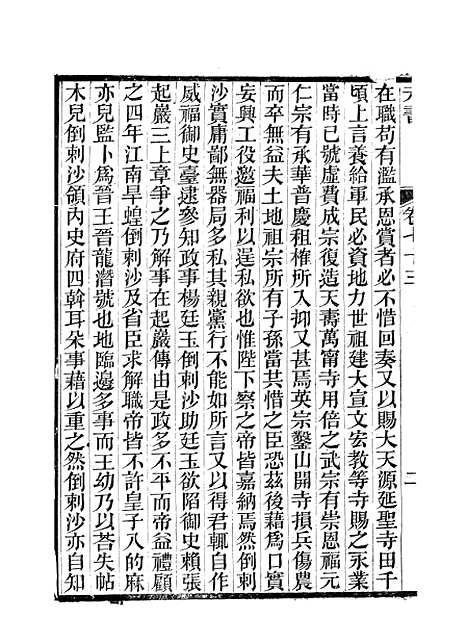 在職苟有濫承恩賞者必不惜回奏又以賜大天源延聖寺田千
頃上言養給軍民必資地力世祖建大宣文宏教等寺賜之永業
當時已號虛費成宗復造天壽萬甯寺用倍之武宗有崇恩福元
仁宗有承華普慶租榷所入抑又甚焉英宗鑿山開寺損兵傷農
而卒無益夫土地祖宗所有子孫當共惜之臣恐茲後藉爲口實
妄興工役邀福利以逞私欲也惟陛下察之帝皆嘉納焉然倒剌
沙實庸鄙無器局多私其親黨行不能如所言又以得君輒自作
威福御史臺逮參知政事楊廷玉倒剌沙助廷玉欲陷御史賴張
起巖三上章爭之乃解事在起巖傳由是政多不平而帝益禮顧
之四年江南旱蝗倒剌沙及省臣求解職帝皆不許皇子八的麻
亦兒監卜爲晉王晉龍潛號也地臨邊多事而王幼乃以荅失帖
木兒倒剌沙領內史府四斡耳朵事藉以重之然倒剌沙亦自知
元書
卷七十三
二